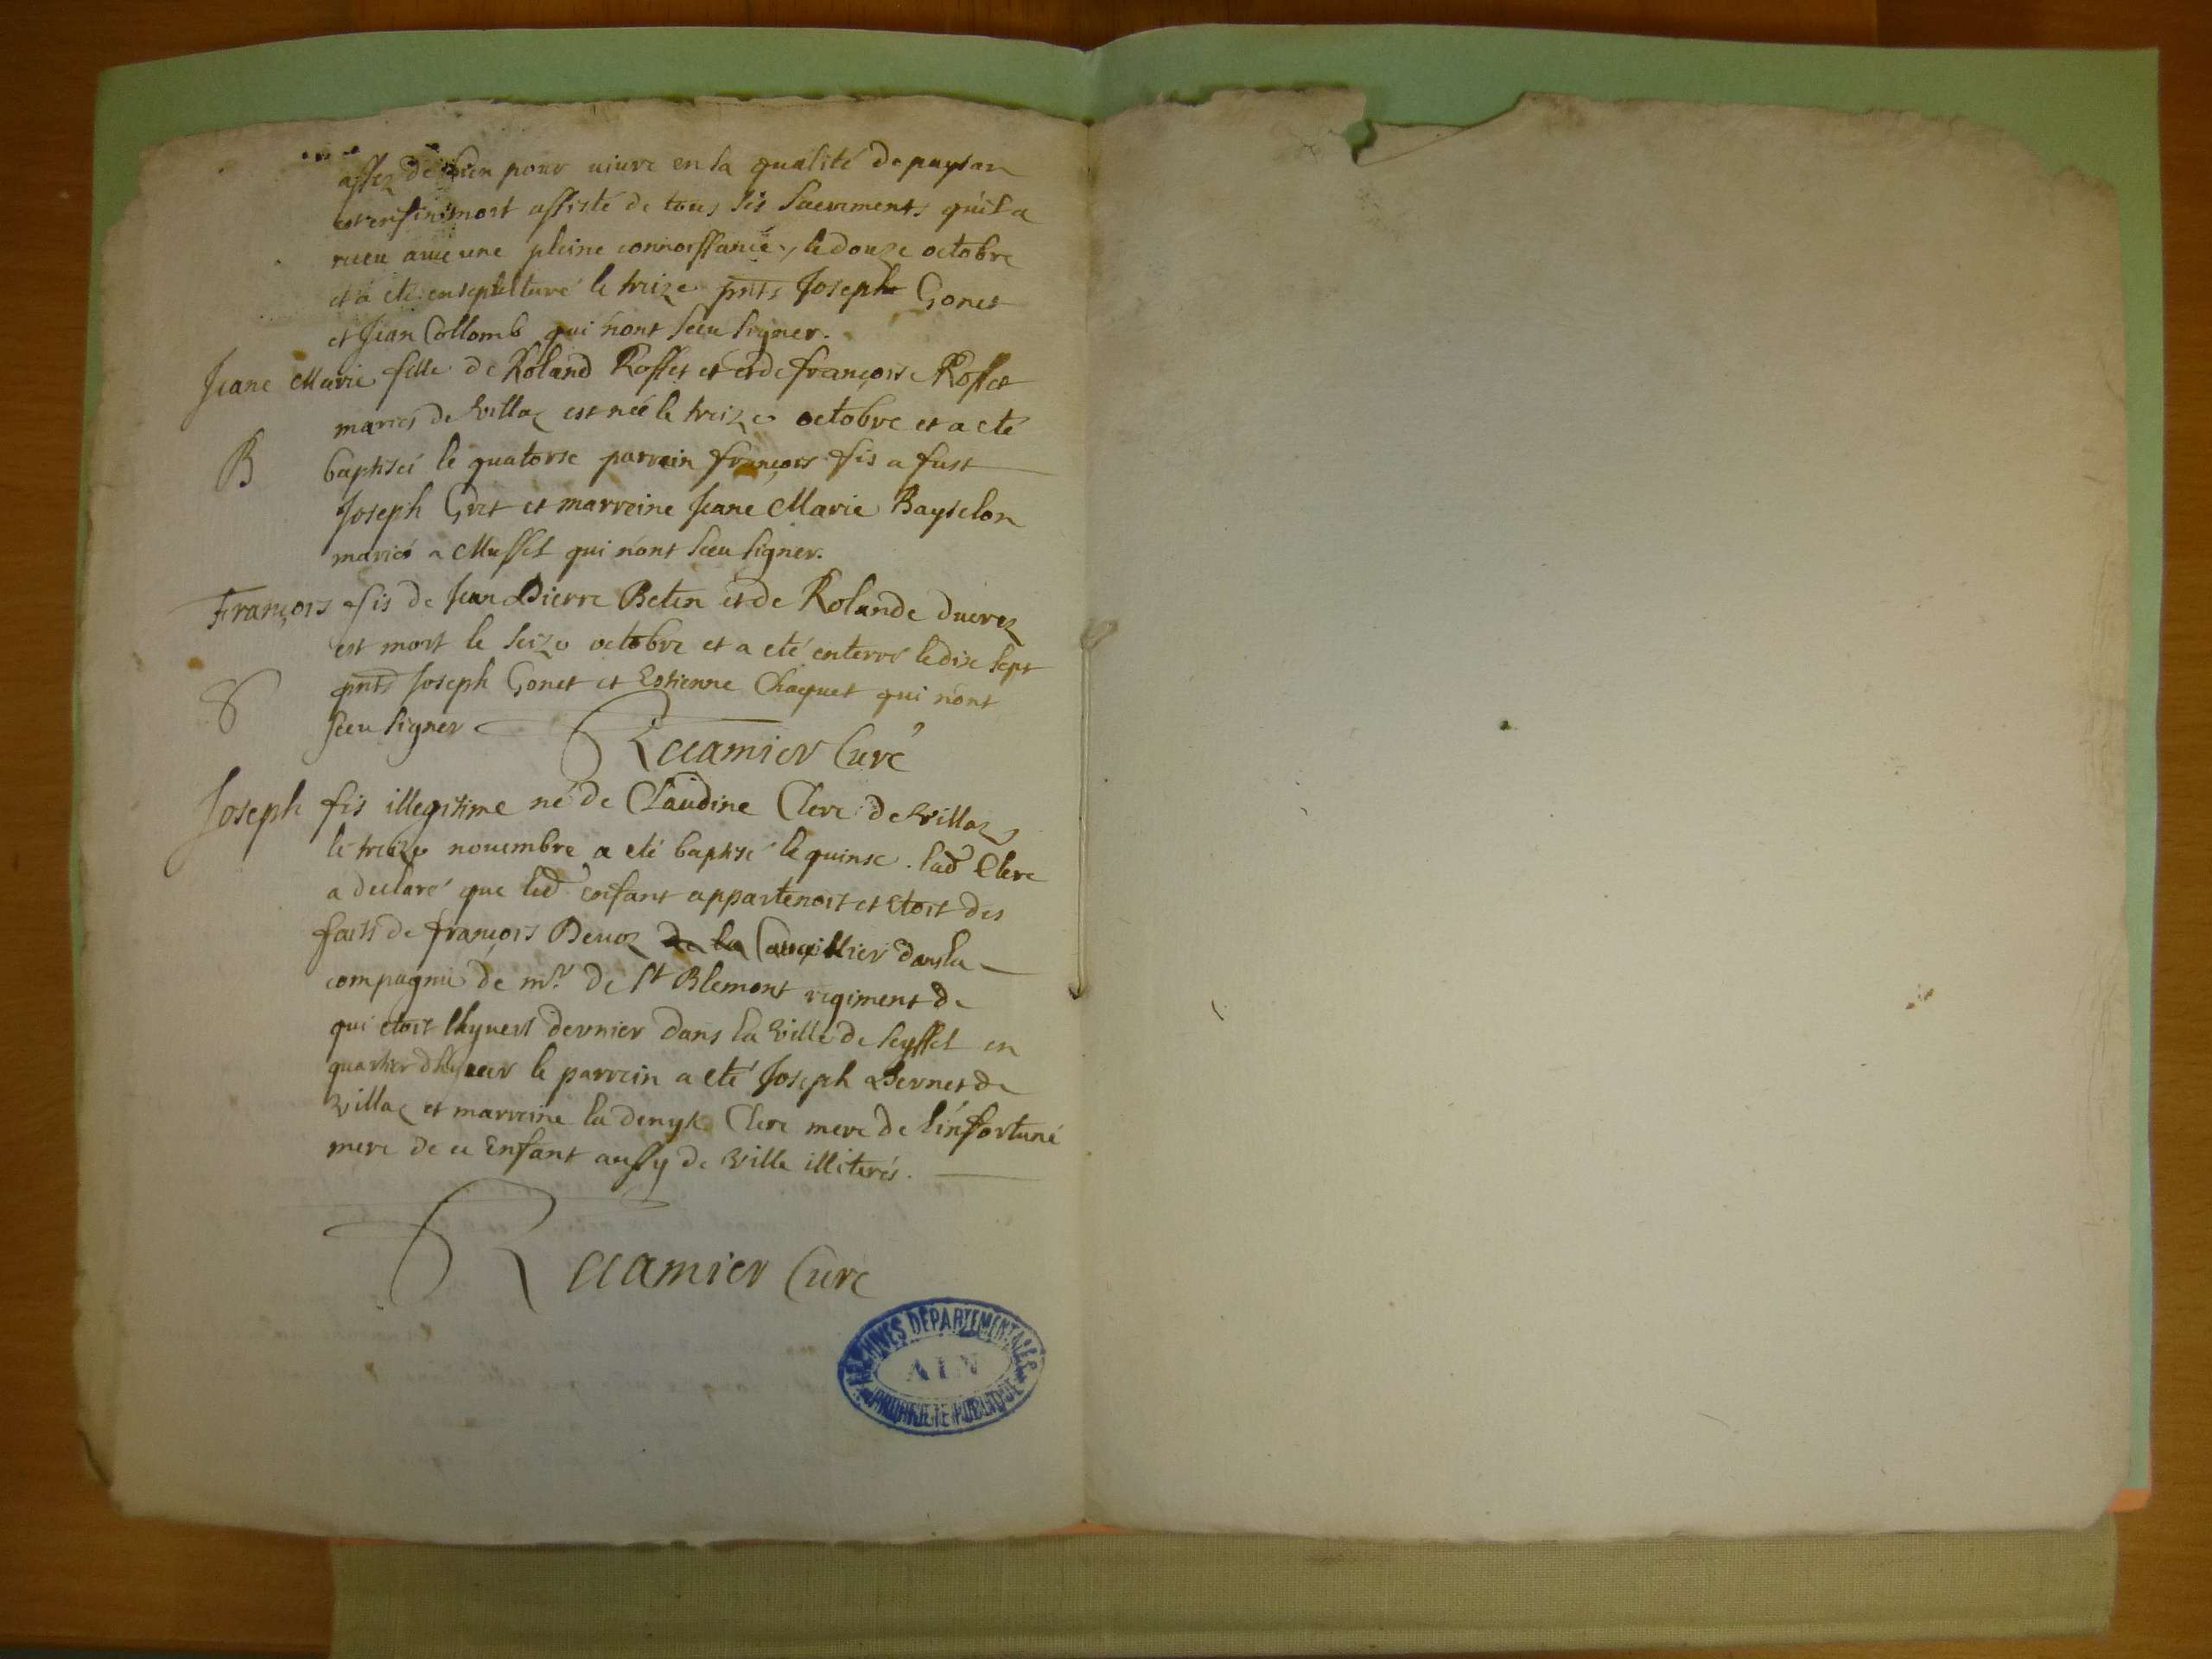 assez de bien pour uiure en la qualité de paysan
est enfin mort assisté de tous ses sacrements qu'il a
receu auec une pleine connoissance, le douze octobre
et a eté ensepulturé le treize pnts Joseph Gonet
et Jean Collomb qui n'ont sceu signer.
Jeane Marie fille de Roland Rosset et de françoise Rosset
mariés de Villaz est née le treize octobre et a eté
B baptisée le quatorse parrein françois fis a fust
Joseph Gret et marreine Jeane Marie Bayselon
mariés a Mussel qui n'ont sceu signer.
François fis de Jean Pierre Betin et de Rolande Ducrez
est mort le seize octobre et a eté enterré le dix sept
S pnts Joseph Gonet et Estienne Chaquet qui n'ont
sceu signer
Recamier Curé
Joseph fis illegitime né de Claudine Clerc de Villaz
le treize nouembre a eté baptisé le quinse. lad Clerc
a declaré que led enfant appartenoit et etoit des
faits de françois Deuoz de la Caualier dans la
compagnie de mr. de St Blemont regiment de
qui etoit lhyuert dernier dans la Ville de Seyssel en
quartier dhyuer le parrein a eté Joseph Pernet de
Villaz et marreine la denyse Clerc mere de l'infortuné
mere de ce Enfant aussy de Ville illiterés.
Recamier Curé
ARCHIVES DÉPARTEMENTALES
AIN
PROPRIÉTÉ PUBLIQUE